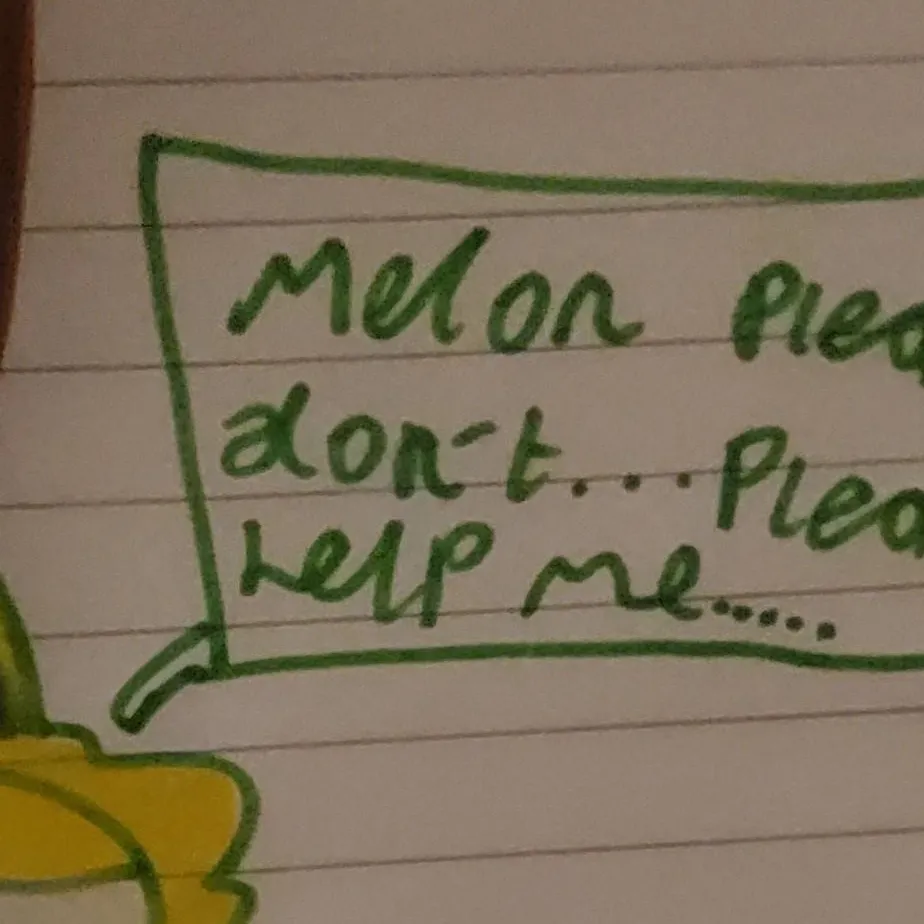 Melon Plea
don't....Plea
help me.....